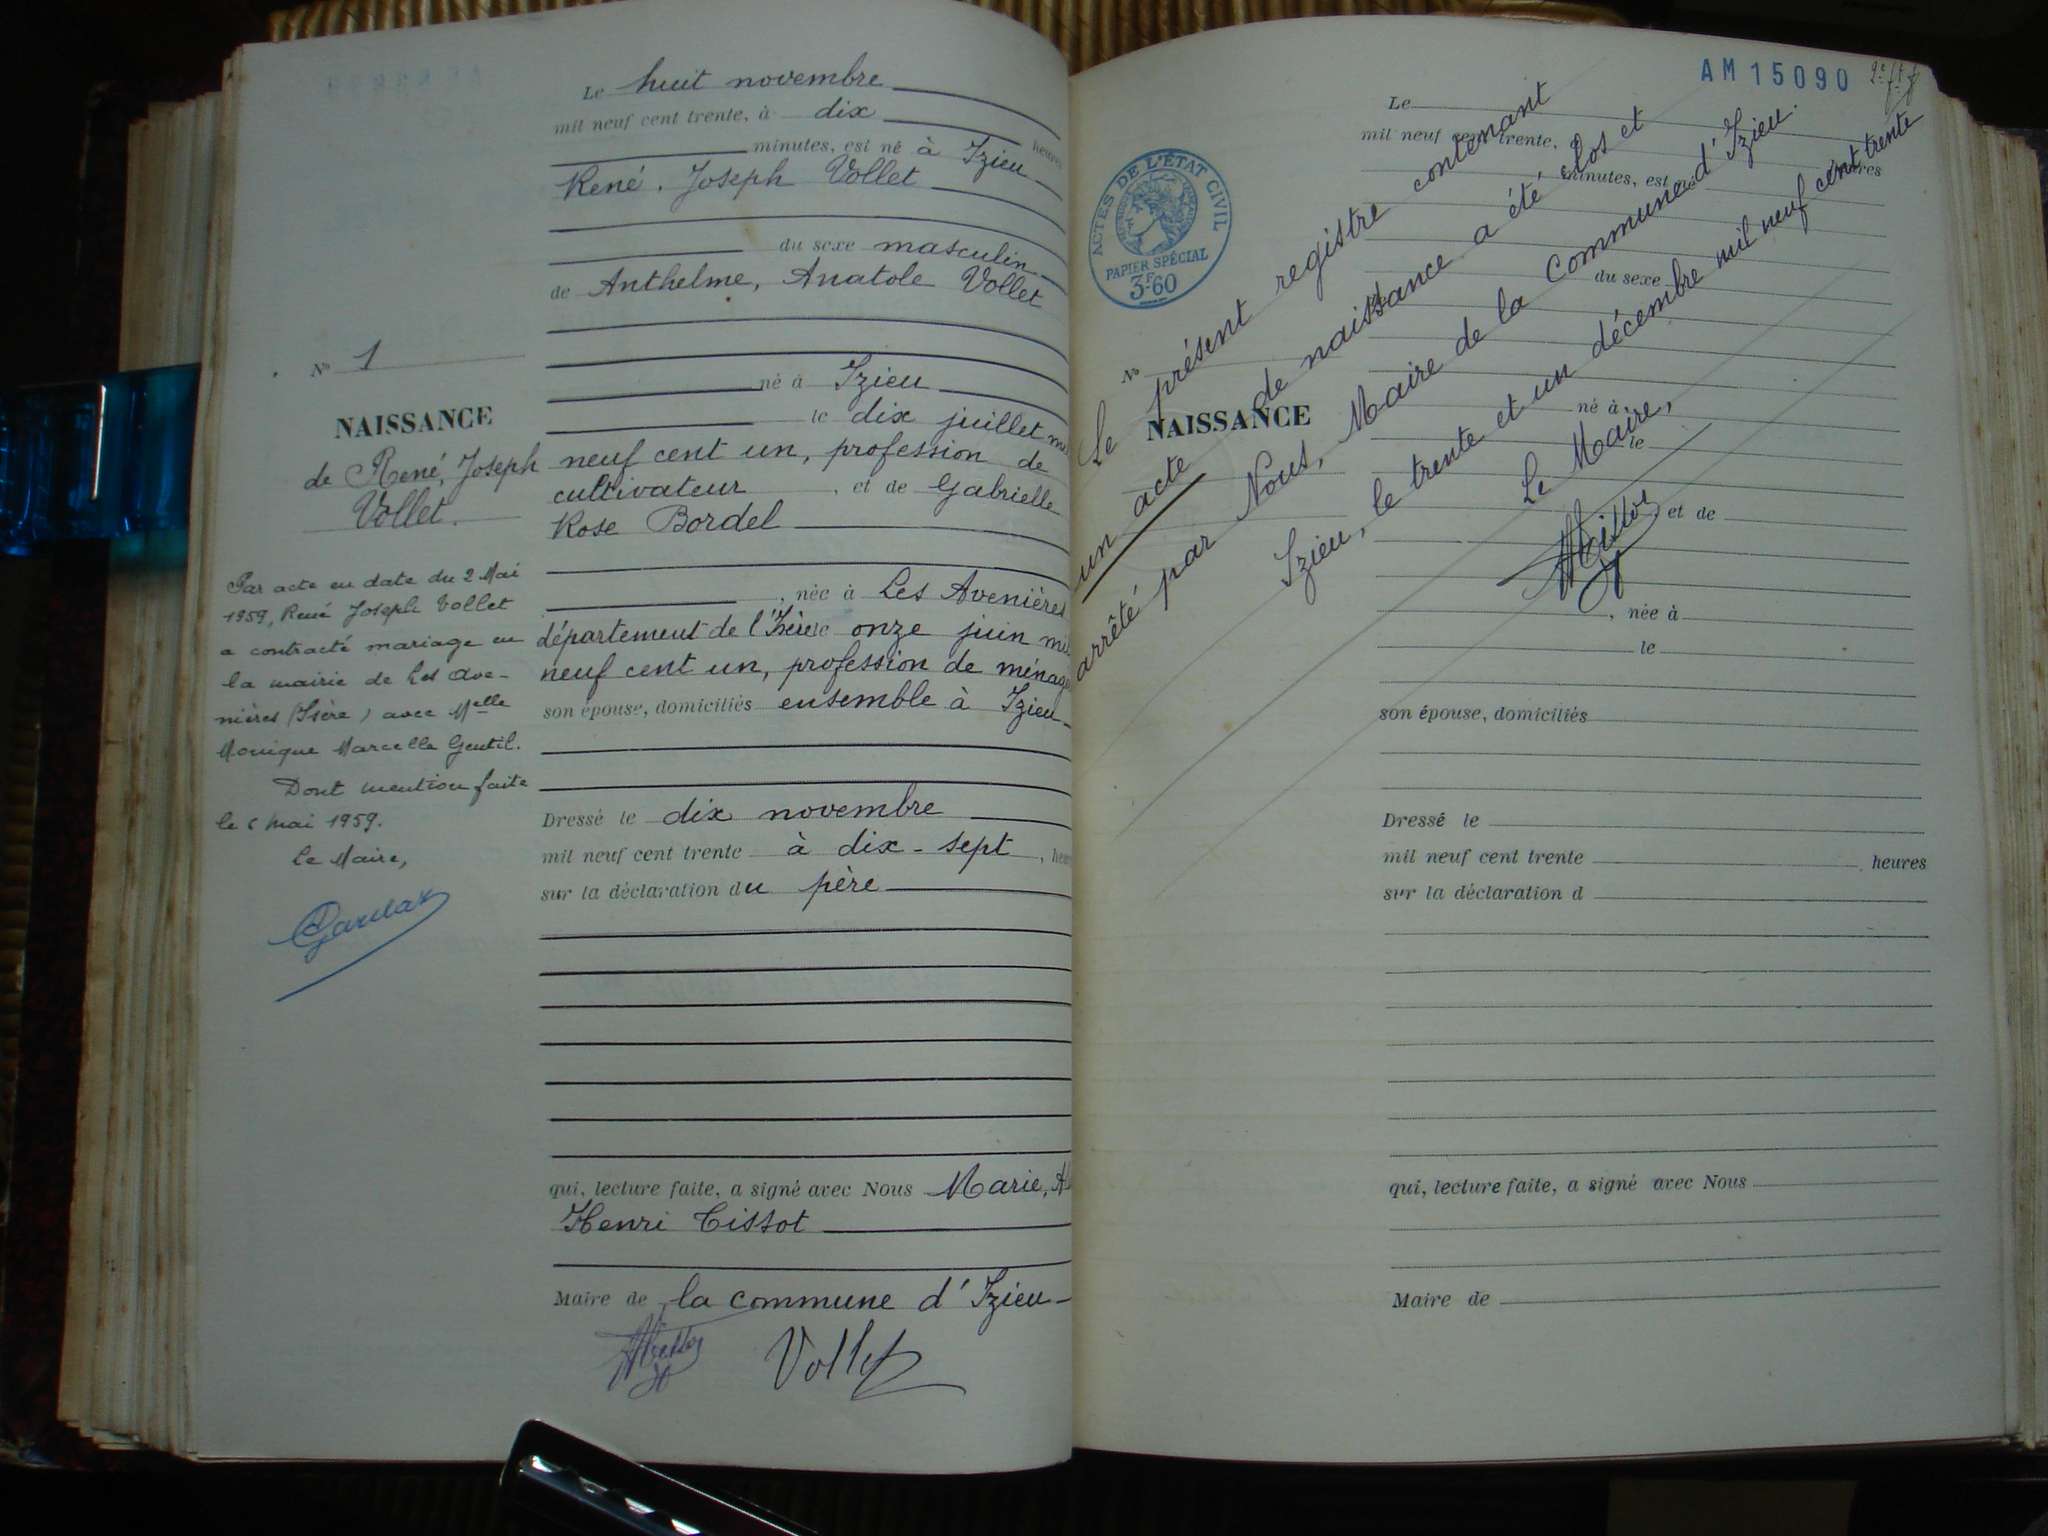 Le huit novembre
mil neuf cent trente, à dix heures
minutes, est né à Izieu
René, Joseph Vollet
du sexe masculin
de Anthelme, Anatole Vollet
né à Izieu
le dix juillet mil
neuf cent un, profession de
cultivateur, et de Gabrielle
Rose Bordel
, née à Les Avenières
département de l'Isère le onze juin mil
neuf cent un, profession de
son épouse, domiciliés ensemble à Izieu
Dressé le dix novembre
mil neuf cent trente à dix-sept, heu
sur la déclaration du père
qui, lecture faite, a signé avec Nous Marie,
Henri Tissot
Maire de la commune d'Izieu
Vollet
N° 1
NAISSANCE
de René, Joseph
Vollet.
Par acte en date du 2 Mai
1959, René Joseph Vollet
a contracté mariage en
la mairie de Les Ave-
nières (Isère) avec Melle
Monique Marcelle Gentil.
Dont mention faite
le mai 1959.
Le Maire,
AM 15090
ACTES DE L'ÉTAT CIVIL
PAPIER SPÉCIAL
3F60
Le présent registre contenant
un acte de naissance a été clos et
arrêté par Nous, Maire de la Commune d'Izieu.
Izieu, le trente et un décembre mil neuf cent trente
Le Maire,
Le
mil neuf cent trente, heures
minutes, est né
du sexe
N°
NAISSANCE
né à
le
et de
, née à
le
son épouse, domiciliés
Dressé le
mil neuf cent trente heures
sur la déclaration d
qui, lecture faite, a signé avec Nous
Maire de